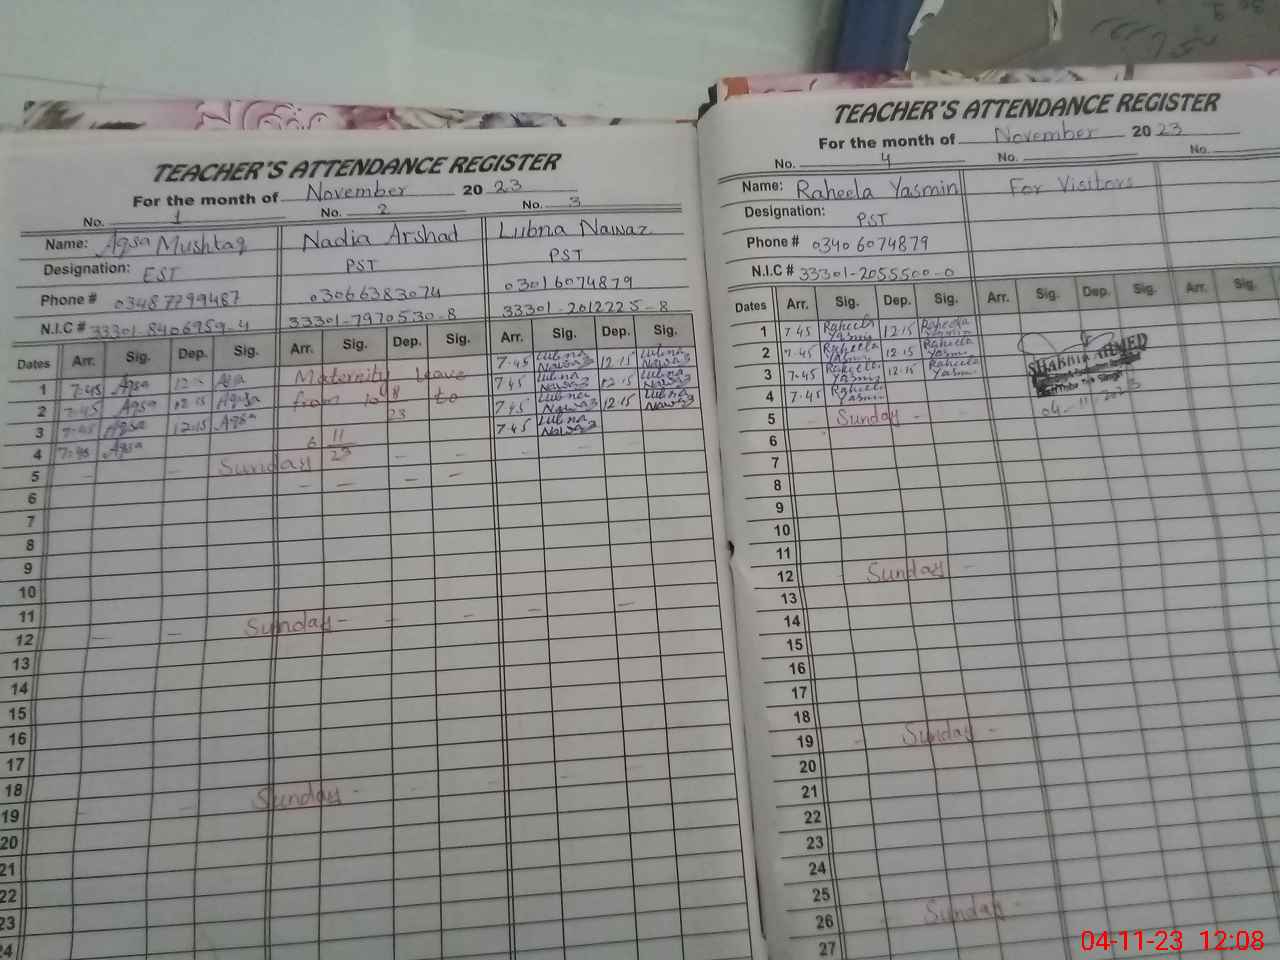 TEACHER'S ATTENDANCE REGISTER
For the month of November 2023
No. 1 No. 2 No. 3
Name: Aqsa Mushtaq Nadia Arshad Lubna Nawaz
Designation: EST PST PST
Phone # 03487799487 03066383074 03016074879
N.I.C # 33301-8406959-4 33301-7970530-8 33301-2012225-8
Dates Arr. Sig. Dep. Sig. Arr. Sig. Dep. Sig. Arr. Sig. Dep. Sig.
1 7.45 Aqsa Maternity leave 7.45 Lubna Nawaz 12.15 Lubna Nawaz
2 7.45 Aqsa 12.15 Aqsa from to 7.45 Lubna Nawaz 12.15 Lubna Nawaz
3 7.45 Aqsa 12.15 Aqsa 23 7.45 Lubna Nawaz 12.15 Lubna Nawaz
4 7.45 Aqsa 6 11 23 7.45 Lubna Nawaz
5 Sunday
6
7
8
9
10
11
12 Sunday
13
14
15
16
17
18
19 Sunday
20
21
22
23
24
TEACHER'S ATTENDANCE REGISTER
For the month of November 2023
No. 4 No. No.
Name: Raheela Yasmin For Visitors
Designation: PST
Phone # 03406074879
N.I.C # 33301-2055500-0
Dates Arr. Sig. Dep. Sig. Arr. Sig. Dep. Sig. Arr. Sig.
1 7.45 Raheela Yasmin 12.15 Raheela Yasmin
2 7.45 Raheela Yasmin 12.15 Raheela Yasmin
3 7.45 Raheela Yasmin 12.15 Raheela Yasmin
4 7.45 Raheela Yasmin
SHAKILA AHMED
04-11-2023
5 Sunday
6
7
8
9
10
11
12 Sunday
13
14
15
16
17
18
19 Sunday
20
21
22
23
24
25
26 Sunday
27
04-11-23 12:08